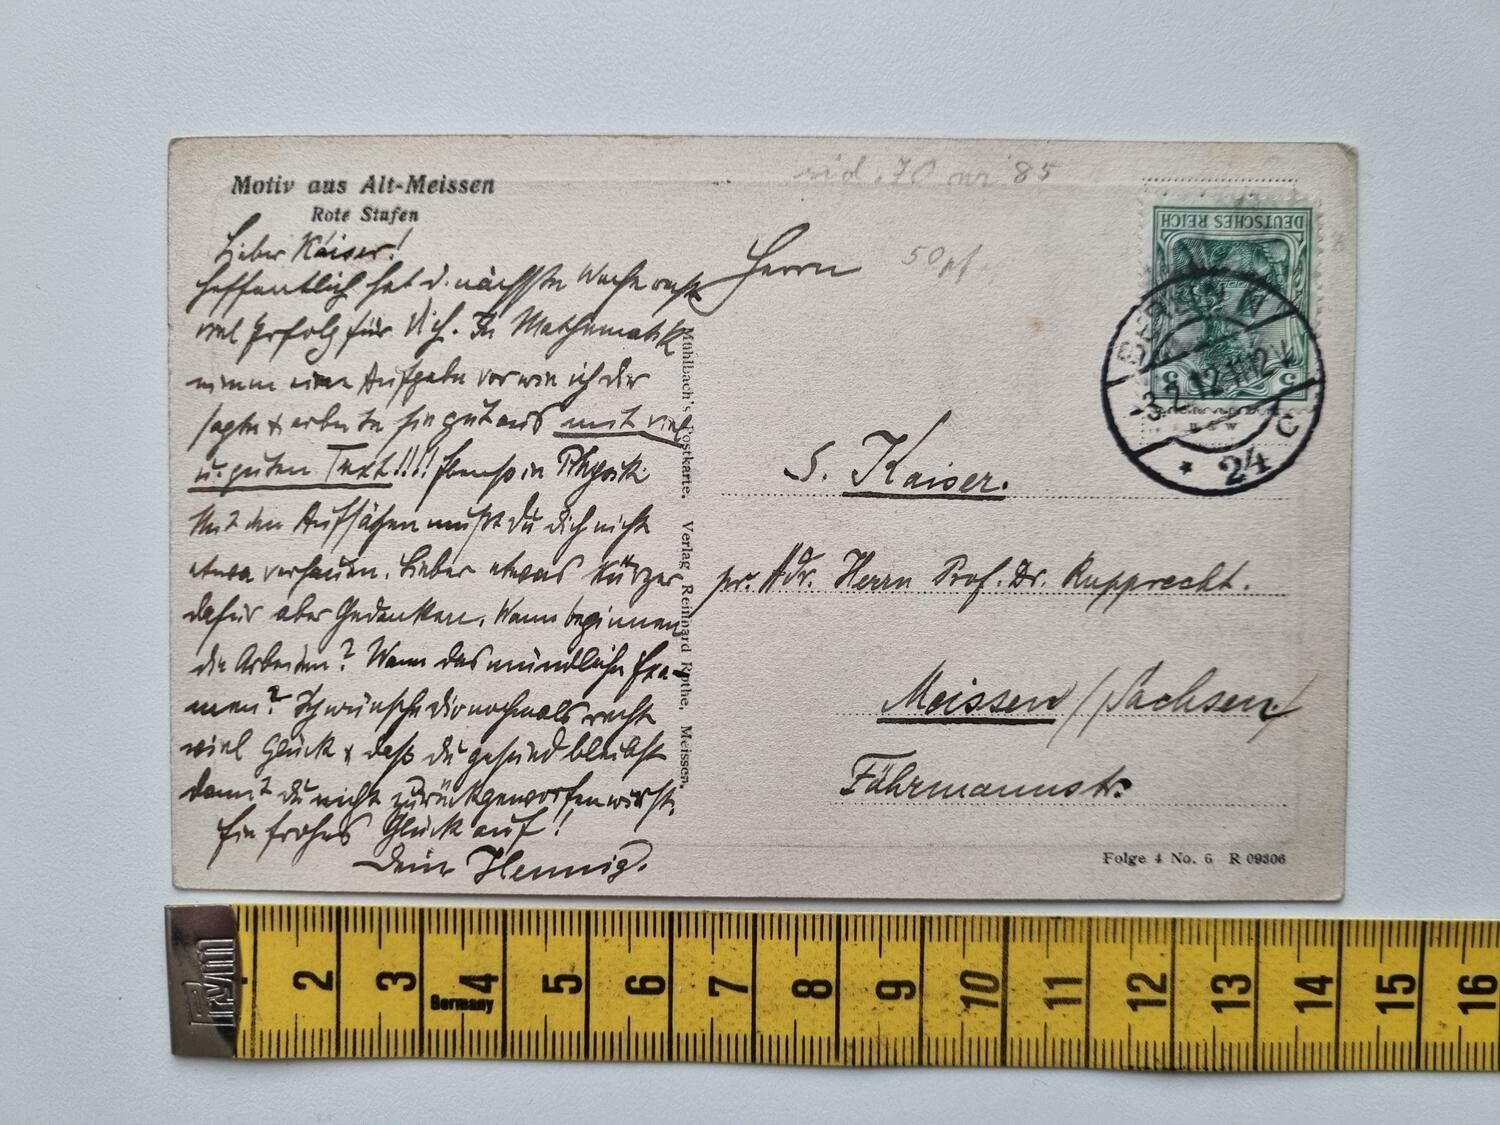 Motiv aus Alt-Meissen
Rote Stufen
Lieber Kaiser!
Hoffentlich hat d. nächste Woche recht
viel Erfolg für Dich. In Mathematik
nimm eine Aufgabe vor wie ich dir
sagte & arbeite sie gut aus mit viel
u. guten Text!!!! Ebenso in Physik.
Mit den Aufsätzen mußt du dich nicht
etwa verhauen. Lieber etwas kürzer
dafür aber Gedanken. Wann beginnen
die Arbeiten? Wann das mündliche Exa-
men? Ich wünsche dir nochmals recht
viel Glück & daß du gesund bleibst
damit du nicht zurückgeworfen wirst.
Ein frohes Glück auf!
Dein Hennig.
Mühlbach's Postkarte. Verlag Reinhard Rothe, Meissen.
70 85
50 pf
Herrn
S. Kaiser.
pr. Adr. Herrn Prof. Dr. Rupprecht.
Meissen / Sachsen /
Fährmannstr.
Folge 4 No. 6 R 09306
DEUTSCHES REICH
5 5
BERLIN W
-3.2.12.11-12V
* 24 C
Prym
2 3 4 5 6 7 8 9 10 11 12 13 14 15 16
Germany